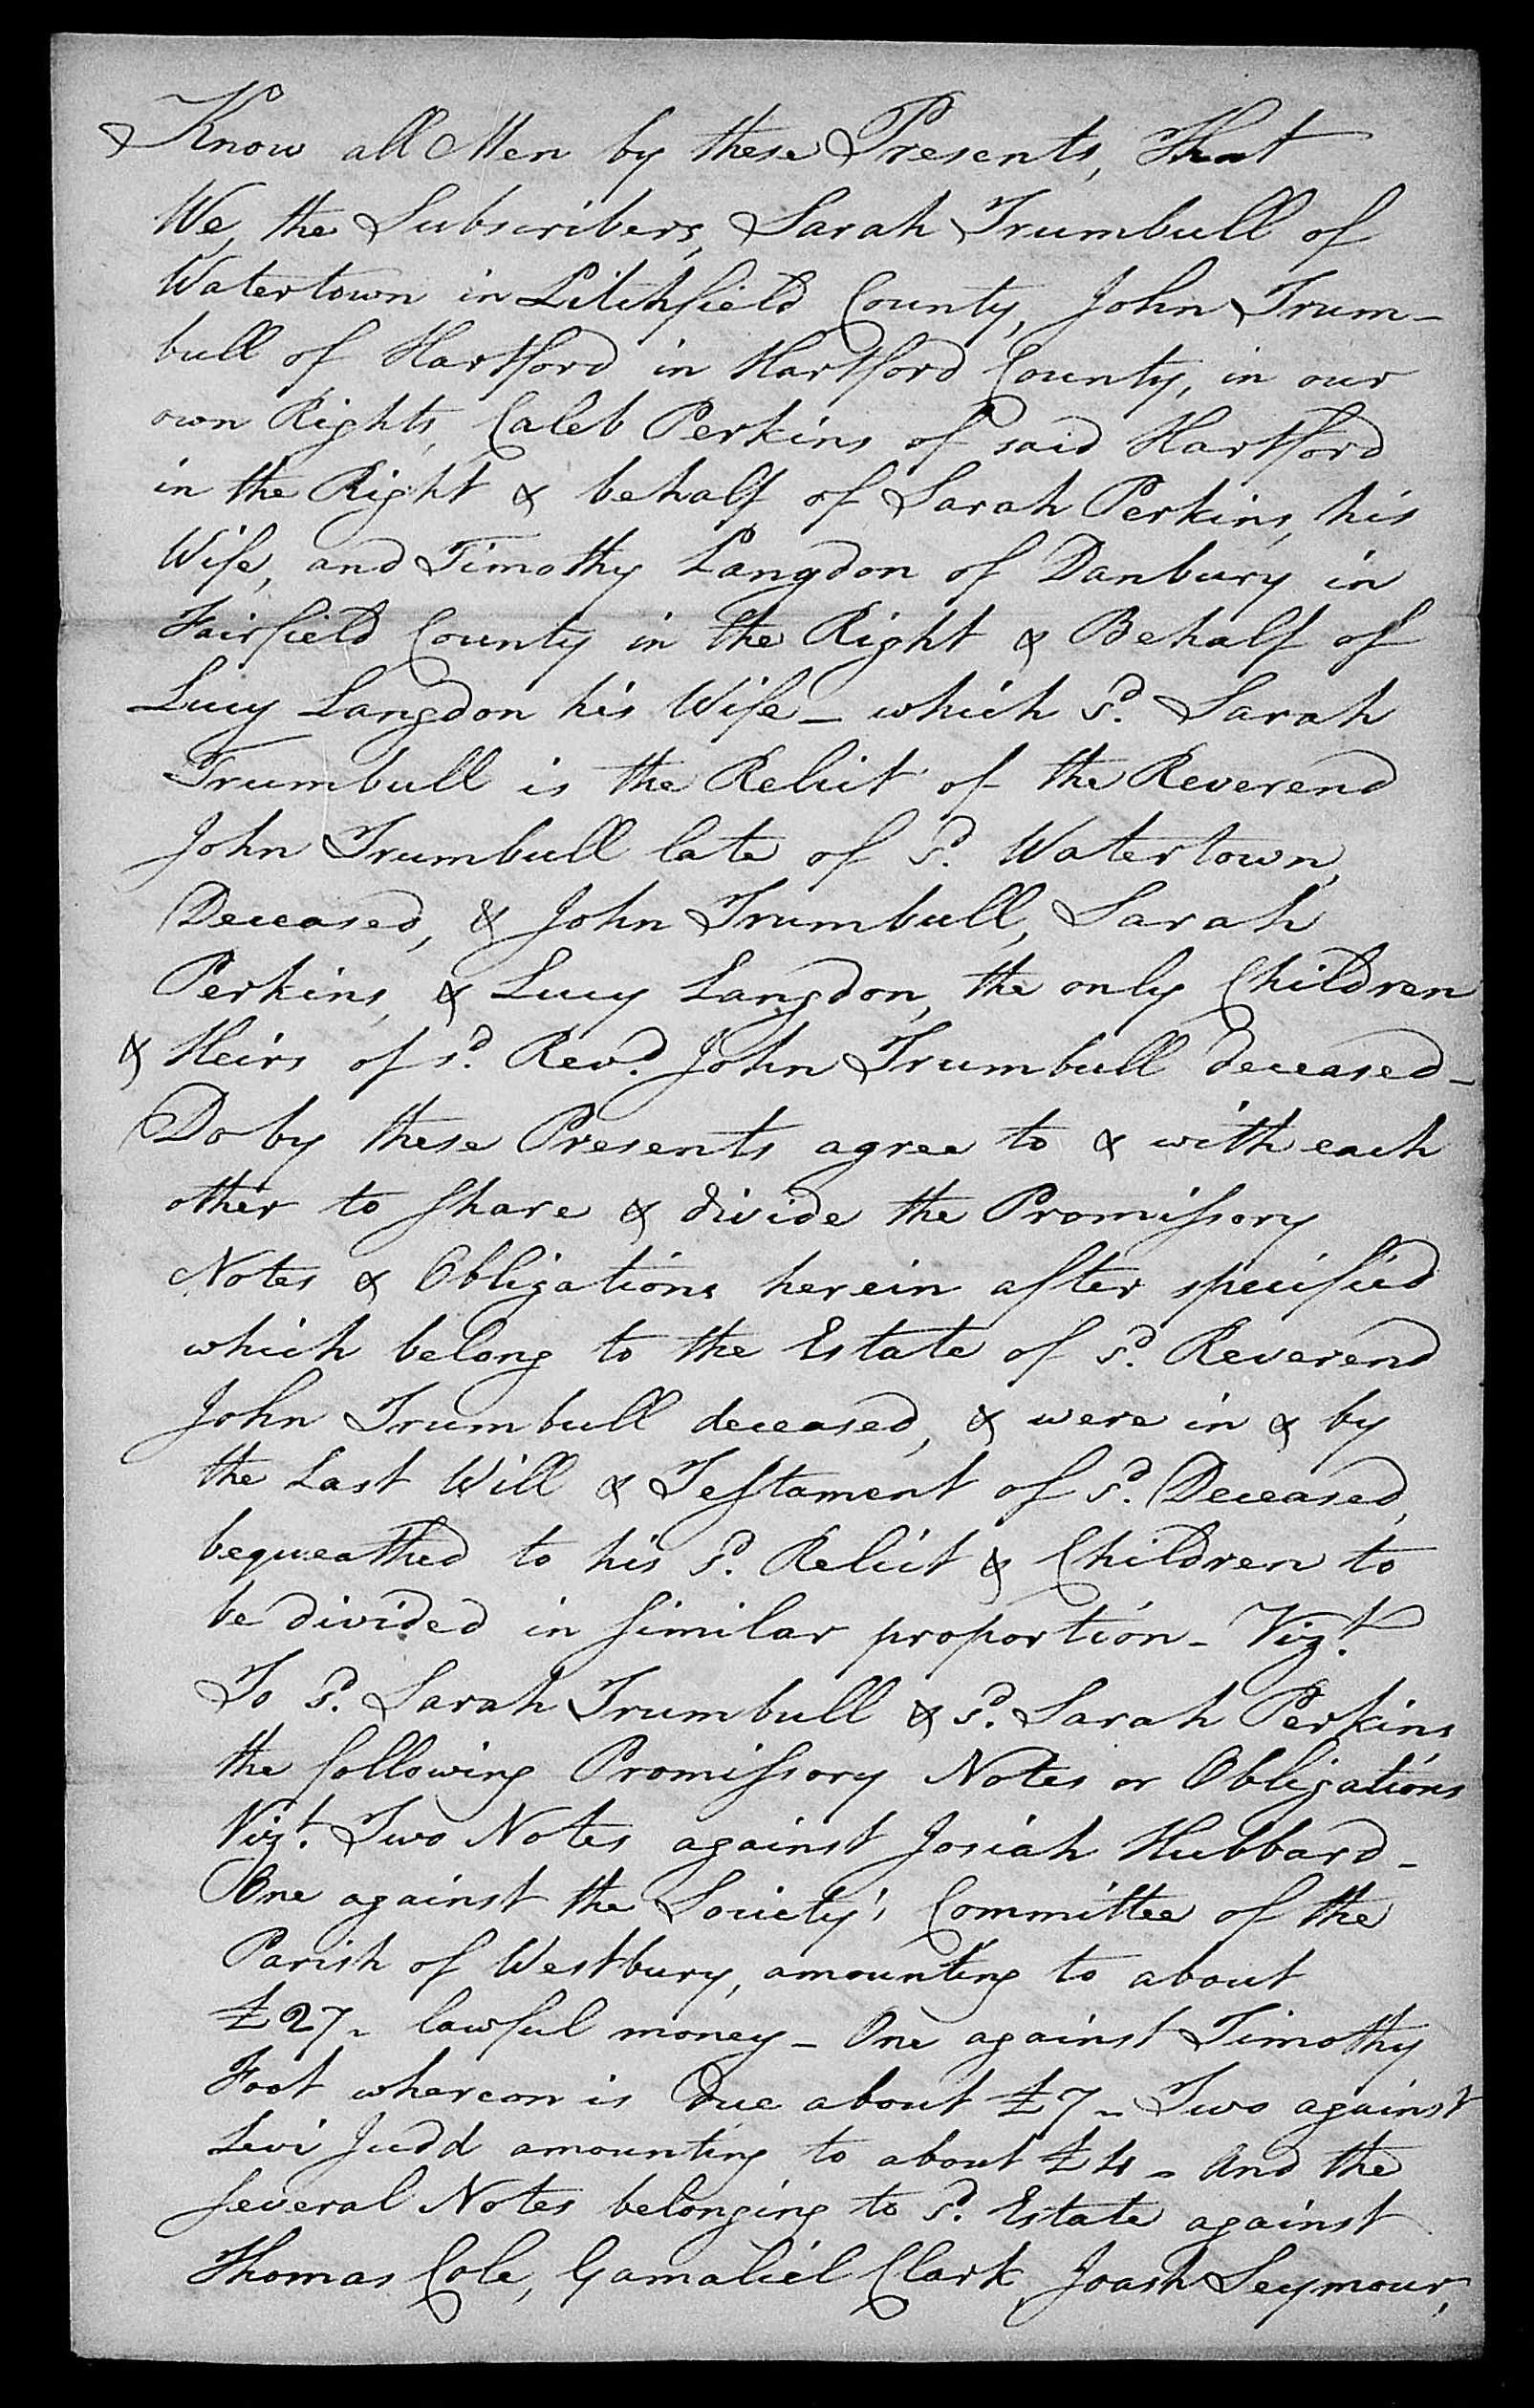 Know all Men by these Presents, That
We, the Subscribers, Sarah Trumbull of
Watertown in Litchfield County, John Trum-
bull of Hartford in Hartford County, in our
own Rights, Caleb Perkins of said Hartford
in the Right & behalf of Sarah Perkins, his
Wife, and Timothy Langdon of Danbury in
Fairfield County in the Right & Behalf of
Lucy Langdon his Wife – which sd. Sarah
Trumbull is the Relict of the Reverend
John Trumbull late of sd. Watertown,
Deceased, & John Trumbull, Sarah
Perkins, & Lucy Langdon, the only Children
& Heirs of sd. Revd. John Trumbull deceased –
Do by these Presents agree to & with each
other to share & divide the Promissory
Notes & Obligations herein after specified
which belong to the Estate of sd. Reverend
John Trumbull deceased, & were in & by
the Last Will & Testament of sd. Deceased,
bequeathed to his sd. Relict & Children to
be divided in similar proportion – Vizt.
To sd. Sarah Trumbull & sd. Sarah Perkins
the following Promissory Notes or Obligations
Vizt. Two Notes against Josiah Hubbard –
One against the Society's Committee of the
Parish of Westbury, amounting to about
£27 – lawful money – One against Timothy
Foot whereon is due about £7 – Two against
Levi Judd amounting to about £4 – And the
several Notes belonging to sd. Estate against
Thomas Cole, Gamaliel Clark, Joash Seymour,